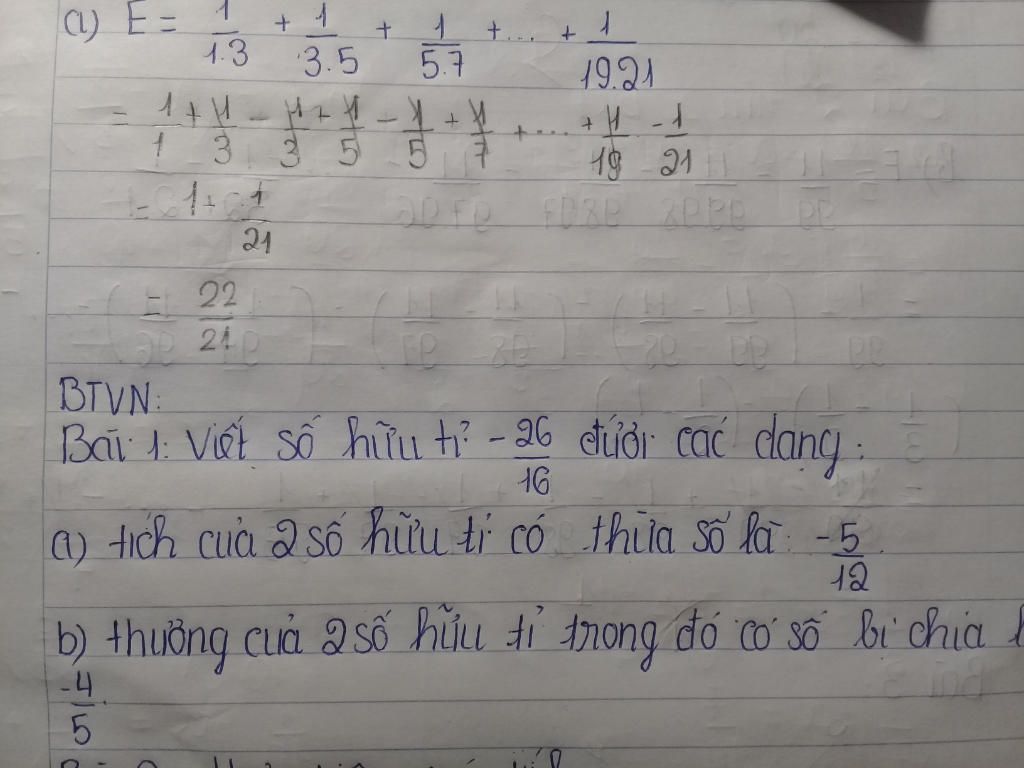 a) E = 1/1.3 + 1/3.5 + 1/5.7 + ... + 1/19.21
= 1/1 + 1/3 - 1/3 + 1/5 - 1/5 + 1/7 + ... + 1/19 - 1/21
= 1 + 1/21
= 22/21
BTVN:
Bài 1: Viết số hữu tỉ -26/16 dưới các dạng:
a) tích của 2 số hữu tỉ có thừa số là: -5/12.
b) thương của 2 số hữu tỉ trong đó có số bị chia
-4/5.